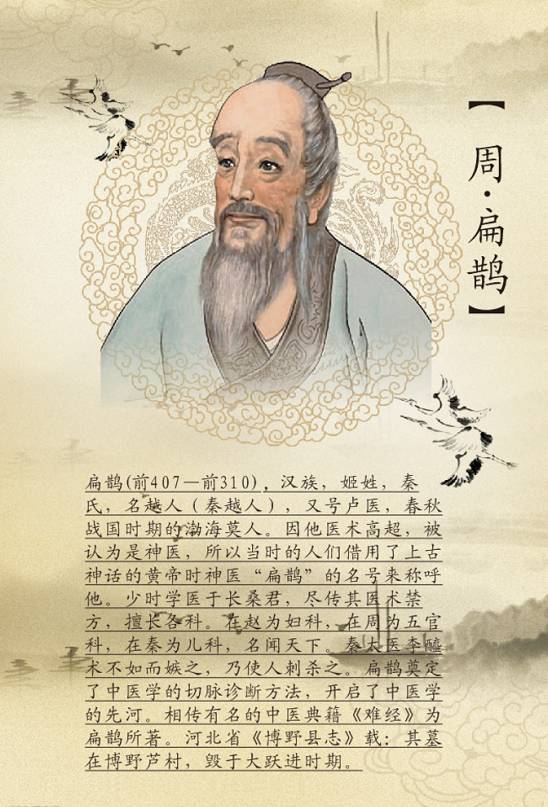 【周·扁鹊】
扁鹊(前407—前310)，汉族，姬姓，秦
氏，名越人（秦越人），又号卢医，春秋
战国时期的渤海莫人。因他医术高超，被
认为是神医，所以当时的人们借用了上古
神话的黄帝时神医“扁鹊”的名号来称呼
他。少时学医于长桑君，尽传其医术禁
方，擅长各科。在赵为妇科，在周为五官
科，在秦为儿科，名闻天下。秦太医李醯
术不如而嫉之，乃使人刺杀之。扁鹊奠定
了中医学的切脉诊断方法，开启了中医学
的先河。相传有名的中医典籍《难经》为
扁鹊所著。河北省《博野县志》载：其墓
在博野芦村，毁于大跃进时期。